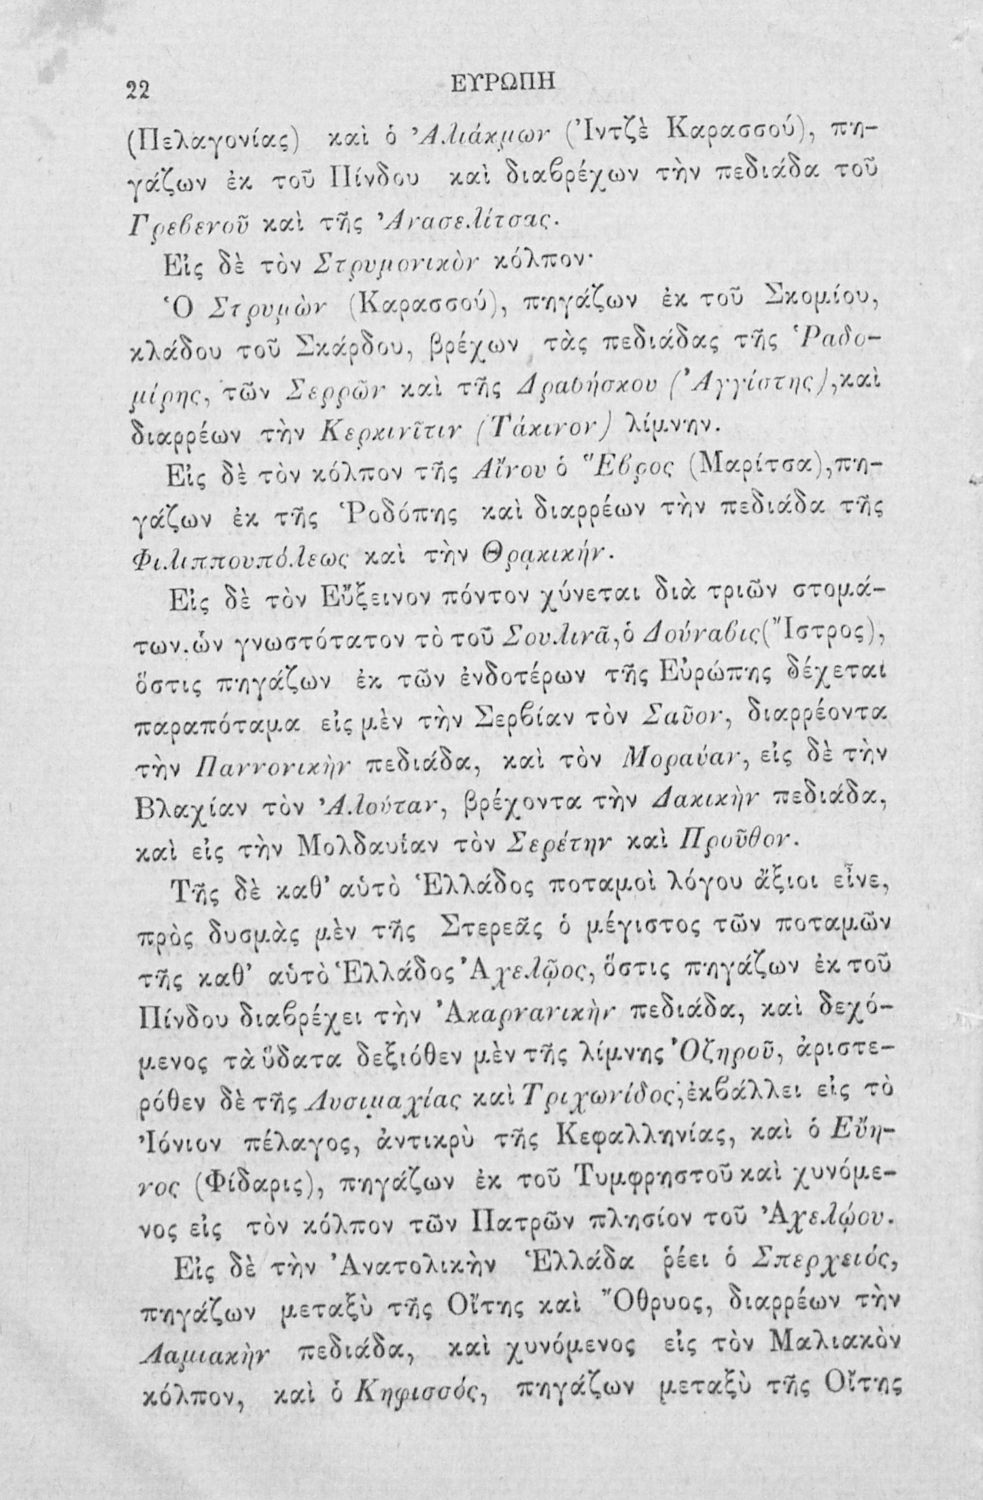 22
ΕΥΡΩΠΗ
(Πελαγονίας) καὶ ὁ Ἁλιάκμων (Ἰντζὲ Καρασσού), πη-
γάζων ἐκ τοῦ Πίνδου καὶ διαβρέχων τὴν πεδιάδα τοῦ
Γρεβενοῦ καὶ τῆς Ἀνασελίτσας.
Εἰς δὲ τὸν Στρυμονικὸν κόλπον·
Ὁ Στρυμὼν (Καρασσού), πηγάζων ἐκ τοῦ Σκομίου,
κλάδου τοῦ Σκάρδου, βρέχων τὰς πεδιάδας τῆς Ῥαδο-
μίρης, τῶν Σερρῶν καὶ τῆς Δραβήσκου (Ἀγγίστης), καὶ
διαρρέων τὴν Κερκινῖτιν (Τάκινον) λίμνην.
Εἰς δὲ τὸν κόλπον τῆς Αἴνου ὁ Ἕβρος (Μαρίτσα), πη-
γάζων ἐκ τῆς Ῥοδόπης καὶ διαρρέων τὴν πεδιάδα τῆς
Φιλιππουπόλεως καὶ τὴν Θρακικήν.
Εἰς δὲ τὸν Εὔξεινον πόντον χύνεται διὰ τριῶν στομά-
των, ὧν γνωστότατον τὸ τοῦ Σουλινᾶ, ὁ Δούναβις (Ἴστρος),
ὅστις πηγάζων ἐκ τῶν ἐνδοτέρων τῆς Εὐρώπης δέχεται
παραπόταμα εἰς μὲν τὴν Σερβίαν τὸν Σαῦον, διαρρέοντα
τὴν Παννονικὴν πεδιάδα, καὶ τὸν Μοραύαν, εἰς δὲ τὴν
Βλαχίαν τὸν Ἀλούταν, βρέχοντα τὴν Δακικὴν πεδιάδα,
καὶ εἰς τὴν Μολδαυΐαν τὸν Σερέτην καὶ Προῦθον.
Τῆς δὲ καθ' αὑτὸ Ἑλλάδος ποταμοὶ λόγου ἄξιοι εἶνε,
πρὸς δυσμὰς μὲν τῆς Στερεᾶς ὁ μέγιστος τῶν ποταμῶν
τῆς καθ' αὑτὸ Ἑλλάδος Ἀχελῷος, ὅστις πηγάζων ἐκ τοῦ
Πίνδου διαβρέχει τὴν Ἀκαρνανικὴν πεδιάδα, καὶ δεχό-
μενος τὰ ὕδατα δεξιόθεν μὲν τῆς λίμνης Ὀζηροῦ, ἀριστε-
ρόθεν δὲ τῆς Λυσιμαχίας καὶ Τριχωνίδος, ἐκβάλλει εἰς τὸ
Ἰόνιον πέλαγος, ἀντικρὺ τῆς Κεφαλληνίας, καὶ ὁ Εὔη-
νος (Φίδαρις), πηγάζων ἐκ τοῦ Τυμφρηστοῦ καὶ χυνόμε-
νος εἰς τὸν κόλπον τῶν Πατρῶν πλησίον τοῦ Ἀχελῴου.
Εἰς δὲ τὴν Ἀνατολικὴν Ἑλλάδα ῥέει ὁ Σπερχειός,
πηγάζων μεταξὺ τῆς Οἴτης καὶ Ὄθρυος, διαρρέων τὴν
Λαμιακὴν πεδιάδα, καὶ χυνόμενος εἰς τὸν Μαλιακὸν
κόλπον, καὶ ὁ Κηφισσός, πηγάζων μεταξὺ τῆς Οἴτης